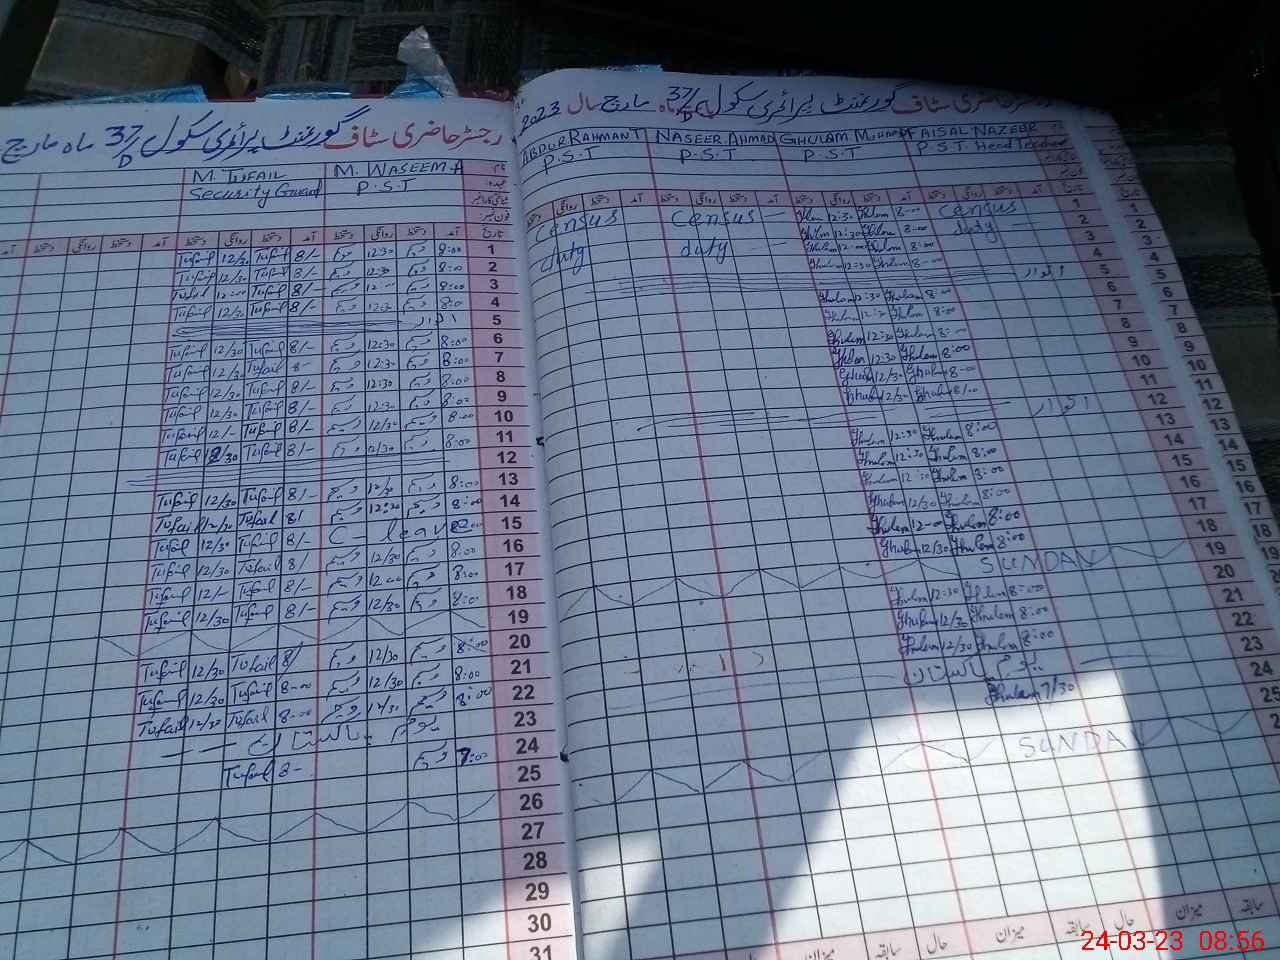 رجسٹر حاضری سٹاف گورنمنٹ پرائمری سکول 37/P ماہ مارچ
M. TUFAIL M. WASEEM.A
Security Guard P.S.T
آمد دستخط روانگی دستخط آمد دستخط روانگی دستخط آمد تاریخ
Tufail 12/30 Tufail 8/- 12:30 8:00 1
Tufail 12/30 Tufail 8/- 12:30 8:00 2
Tufail 12:00 Tufail 8/- 12:00 8:00 3
Tufail 12/30 Tufail 8/- 12:30 8:00 4
اتوار 5
Tufail 12/30 Tufail 8/- 12:30 8:00 6
Tufail 12/30 Tufail 8- 12:30 8:00 7
Tufail 12/30 Tufail 8/- 12:30 8:00 8
Tufail 12/30 Tufail 8/- 12:30 8:00 9
Tufail 12/- Tufail 8/- 12/30 8:00 10
Tufail 12/30 Tufail 8/- 12/30 8:00 11
12
Tufail 12/30 Tufail 8/- 12/30 8:00 13
Tufail 12/30 Tufail 8/ 12:30 8:00 14
Tufail 12/30 Tufail 8/- C- leave 15
Tufail 12/30 Tufail 8/ 12/30 8:00 16
Tufail 12/- Tufail 8/- 12:00 8:00 17
Tufail 12/30 Tufail 8/- 12/30 8:00 18
19
Tufail 12/30 Tufail 8/ 12/30 8:00 20
Tufail 12/30 Tufail 8-00 12/30 8:00 21
Tufail 12/30 Tufail 8-00 12/30 8:00 22
یوم پاکستان 23
Tufail 8- 7:00 24
25
26
27
28
29
30
31
رجسٹر حاضری سٹاف گورنمنٹ پرائمری سکول 37/P ماہ مارچ سال 2023
ABDUR RAHMAN T NASEER AHMAD GHULAM MUHAMM FAISAL NAZEER
P.S.T P.S.T P.S.T P.S.T Head Teacher
دستخط روانگی دستخط آمد دستخط روانگی دستخط آمد دستخط روانگی دستخط آمد تاریخ
Census Census Ghulam 12:30 Ghulam 8-00 Census 1
Ghulam 12:30 Ghulam 8:00 2
duty duty Ghulam 12-00 Ghulam 8:00 duty 3
Ghulam 12:30 Ghulam 8:00 4
اتوار 5
Ghulam 12:30 Ghulam 8:00 6
Ghulam 12:30 Ghulam 8:00 7
Ghulam 12:30 Ghulam 8:00 8
Ghulam 12:30 Ghulam 8:00 9
Ghulam 12/30 Ghulam 8-00 10
Ghulam 12/30 Ghulam 8/00 11
اتوار 12
Ghulam 12:30 Ghulam 8:00 13
Ghulam 12:30 Ghulam 8:00 14
Ghulam 12:30 Ghulam 8:00 15
Ghulam 12/30 Ghulam 8:00 16
Ghulam 12-00 Ghulam 8:00 17
Ghulam 12/30 Ghulam 8:00 18
SUNDAY 19
Ghulam 12:30 Ghulam 8:00 20
Ghulam 12/30 Ghulam 8:00 21
Ghulam 12/30 Ghulam 8:00 22
یوم پاکستان 23
Ghulam 7/30 24
25
SUNDAY
میزان سابقہ حال میزان سابقہ حال میزان سابقہ
24-03-23 08:56